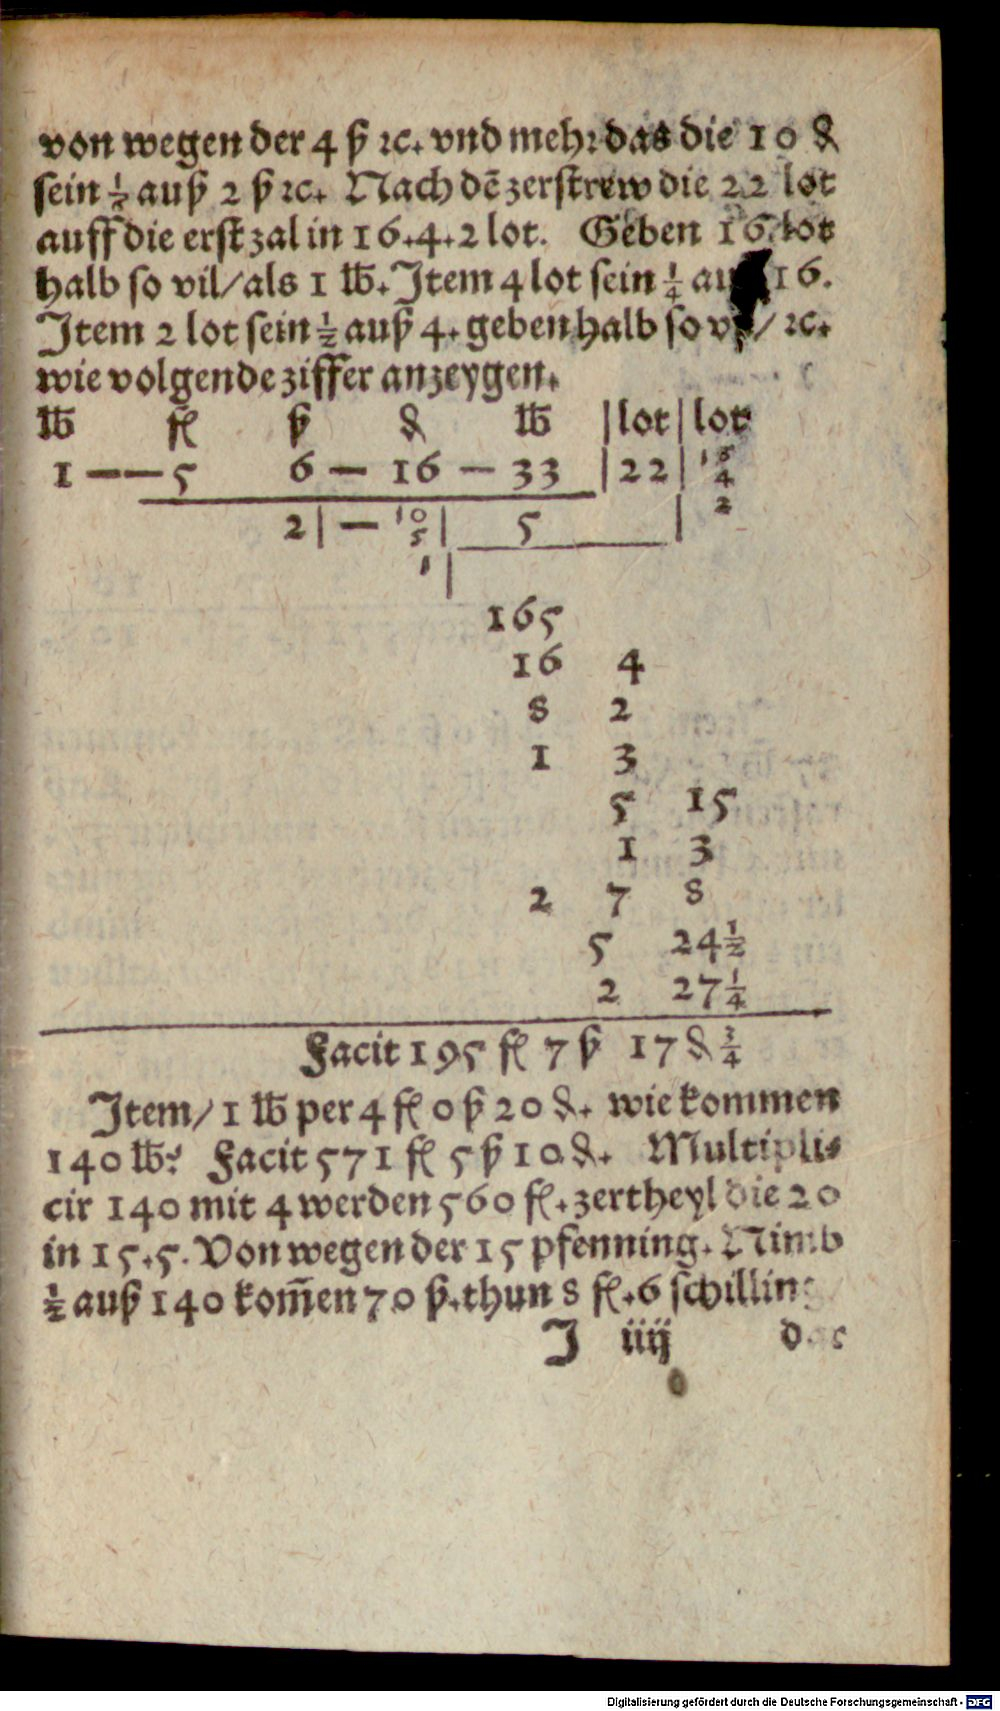 von wegen der 4 ß ꝛc. vnd mehr das die 10 ₰
sein ½ auß 2 ß ꝛc. Nach dē zerstrew die 22 lot
auff die erst zal in 16.4.2 lot. Geben 16. lot
halb so vil/als 1 ℔. Item 4 lot sein ¼ 16.
Item 2 lot sein ½ auß 4. geben halb so / ꝛc.
wie volgende ziffer anzeygen.
℔ fl ß ₰ ℔ |lot|lot
1 —— 5 6 — 16 — 33 |22| 16
4
2
2| — 10| 5
5
1|
165
16 4
8 2
1 3
5 15
1 3
2 7 8
5 24½
2 27¼
Facit 195 fl 7 ß 17 ₰ ¾
Item/ 1 ℔ per 4 fl 0 ß 20 ₰. wie kommen
140 ℔? Facit 571 fl 5 ß 10 ₰. Multipli⸗
cir 140 mit 4 werden 560 fl. zertheyl die 20
in 15.5. Von wegen der 15 pfenning. Nimb
½ auß 140 kom̄en 70 ß. thun 8 fl. 6 schilling
J iiij das
Digitalisierung gefördert durch die Deutsche Forschungsgemeinschaft - DFG